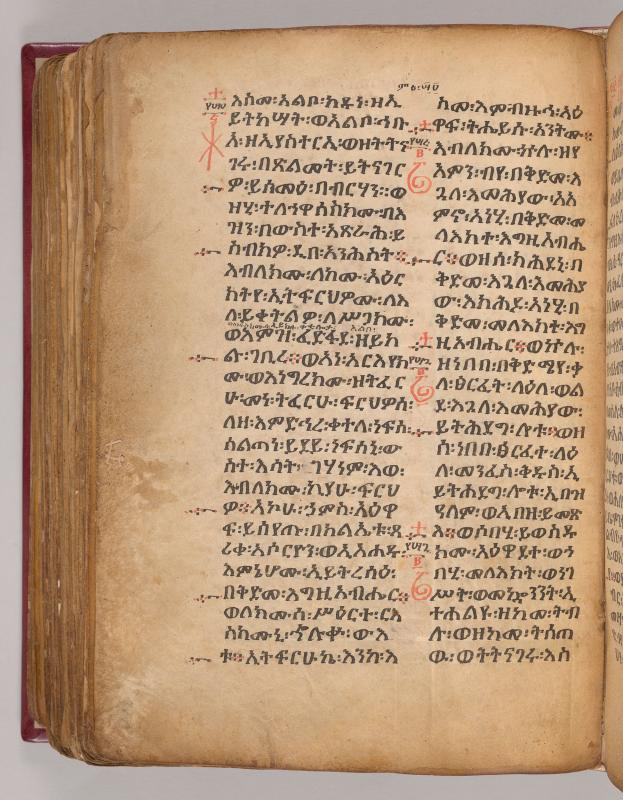 ምዕ፡
እስመ፡አልቦ፡ከዱን፡ዘኢ
ይትከሣት፡ወአልቦ፡ኅቡ
እ፡ዘኢያስተርኢ፡ወዘትትና
ገሩ፡በጽልመት፡ይትናገር
ዎ፡ይሰመዕ፡በብርሃን፡፡ወ
ዘሂ፡ተለኃዋሰስክሙ፡በእ
ዝን፡በውስተ፡አጽራሕ፡ይ
ሰብክዎ፡ዲበ፡አንሕስት።
እብለክሙ፡ለክሙ፡አዕር
ክትየ፡ኢትፍርህዎሙ፡ለእ
ለ፡ይቀትልዎ፡ለሥጋክሙ፡
ወእምዝ፡ፈድፋደ፡ዘይክ
ል፡ገቢረ።ወአነ፡አርእየክ
ሙ፡ወእነግረክሙ፡ዘትፈር
ሁ፡መነ፡ትፈርሁ፡ፍርህዎሰ፡
ለዘ፡እምድኅረ፡ቀተለ፡ነፍሰ፡
ሰልጣነ፡ይደይ፡ነፍሰኒ፡ው
ስተ፡እሳት፡ገሃነም፡እወ፡
እብለክሙ፡ኪያሁ፡ፍርህ
ዎ።አኮሁ፡ኃምስ፡አዕዋ
ፍ፡ይሰየጡ፡በክልኤቱ፡ጸ
ሪቀ፡አሶርዮን፡ወአሐዱ፡
እምኔሆሙ፡ኢይትረሳዕ፡
በቅድመ፡እግዚአብሔር።
ወለክሙሰ፡ሥዕርተ፡ርእ
ስክሙኒ፡ኍሉቍ፡ውእ
ቱ።ኢትፍርሁኬ፡እንከ፡እ
ስመ፡እምብዙኅ፡አዕ
ዋፍ፡ትሔይሱ፡አንትሙ።
እብለክሙ፡ኵሉ፡ዘየ
አምን፡ብየ፡በቅድመ፡እ
ጓለ፡እመሕያው፡አአ
ምኖ፡አነሂ፡በቅድመ፡መ
ላእክተ፡እግዚአብሔ
ር።ወዘሰ፡ክሕደኒ፡በ
ቅድመ፡እጓለ፡እመሕያ
ው፡እክሕዶ፡አነሂ፡በ
ቅድመ፡መላእክተ፡እግ
ዚአብሔር።ወኵሉ፡
ዘነበበ፡በቅድሜየ፡ቃ
ለ፡ፅርፈት፡ላዕለ፡ወል
ደ፡እጓለ፡እመሕያው፡
ይትኀደግ፡ሎቱ።ወዘ
ሰ፡ነበበ፡ፅርፈተ፡ላዕ
ለ፡መንፈስ፡ቅዱስ፡ኢ
ይትኀደግ፡ሎቱ፡ኢበዝ
ዓለም፡ወኢበዘ፡ይመጽ
እ።ወሶበሂ፡ይወስዱ
ክሙ፡አዕዋደተ፡ወኀ
በሂ፡መላእክት፡ወነገ
ሥት፡ወመኳንንት፡ኢ
ተሐልዩ፡ዘከመ፡ትብ
ሉ፡ወዘከመ፡ትሰጠ
ው፡ወትትናገሩ፡እስ